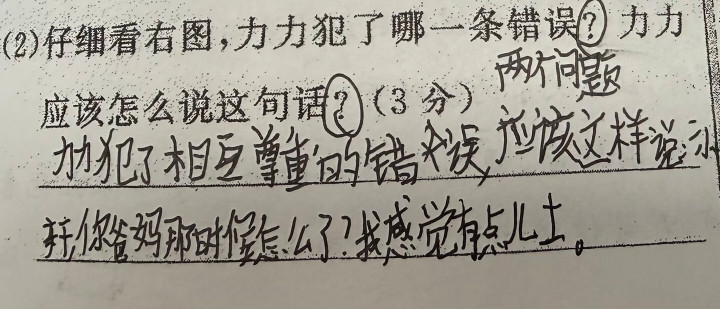 (2)仔细看右图,力力犯了哪一条错误?力力
两个问题
应该怎么说这句话?(3分)
力力犯了相互尊重的错误,应该这样说:小
你爸妈那时候怎么了?我感觉有点儿土。